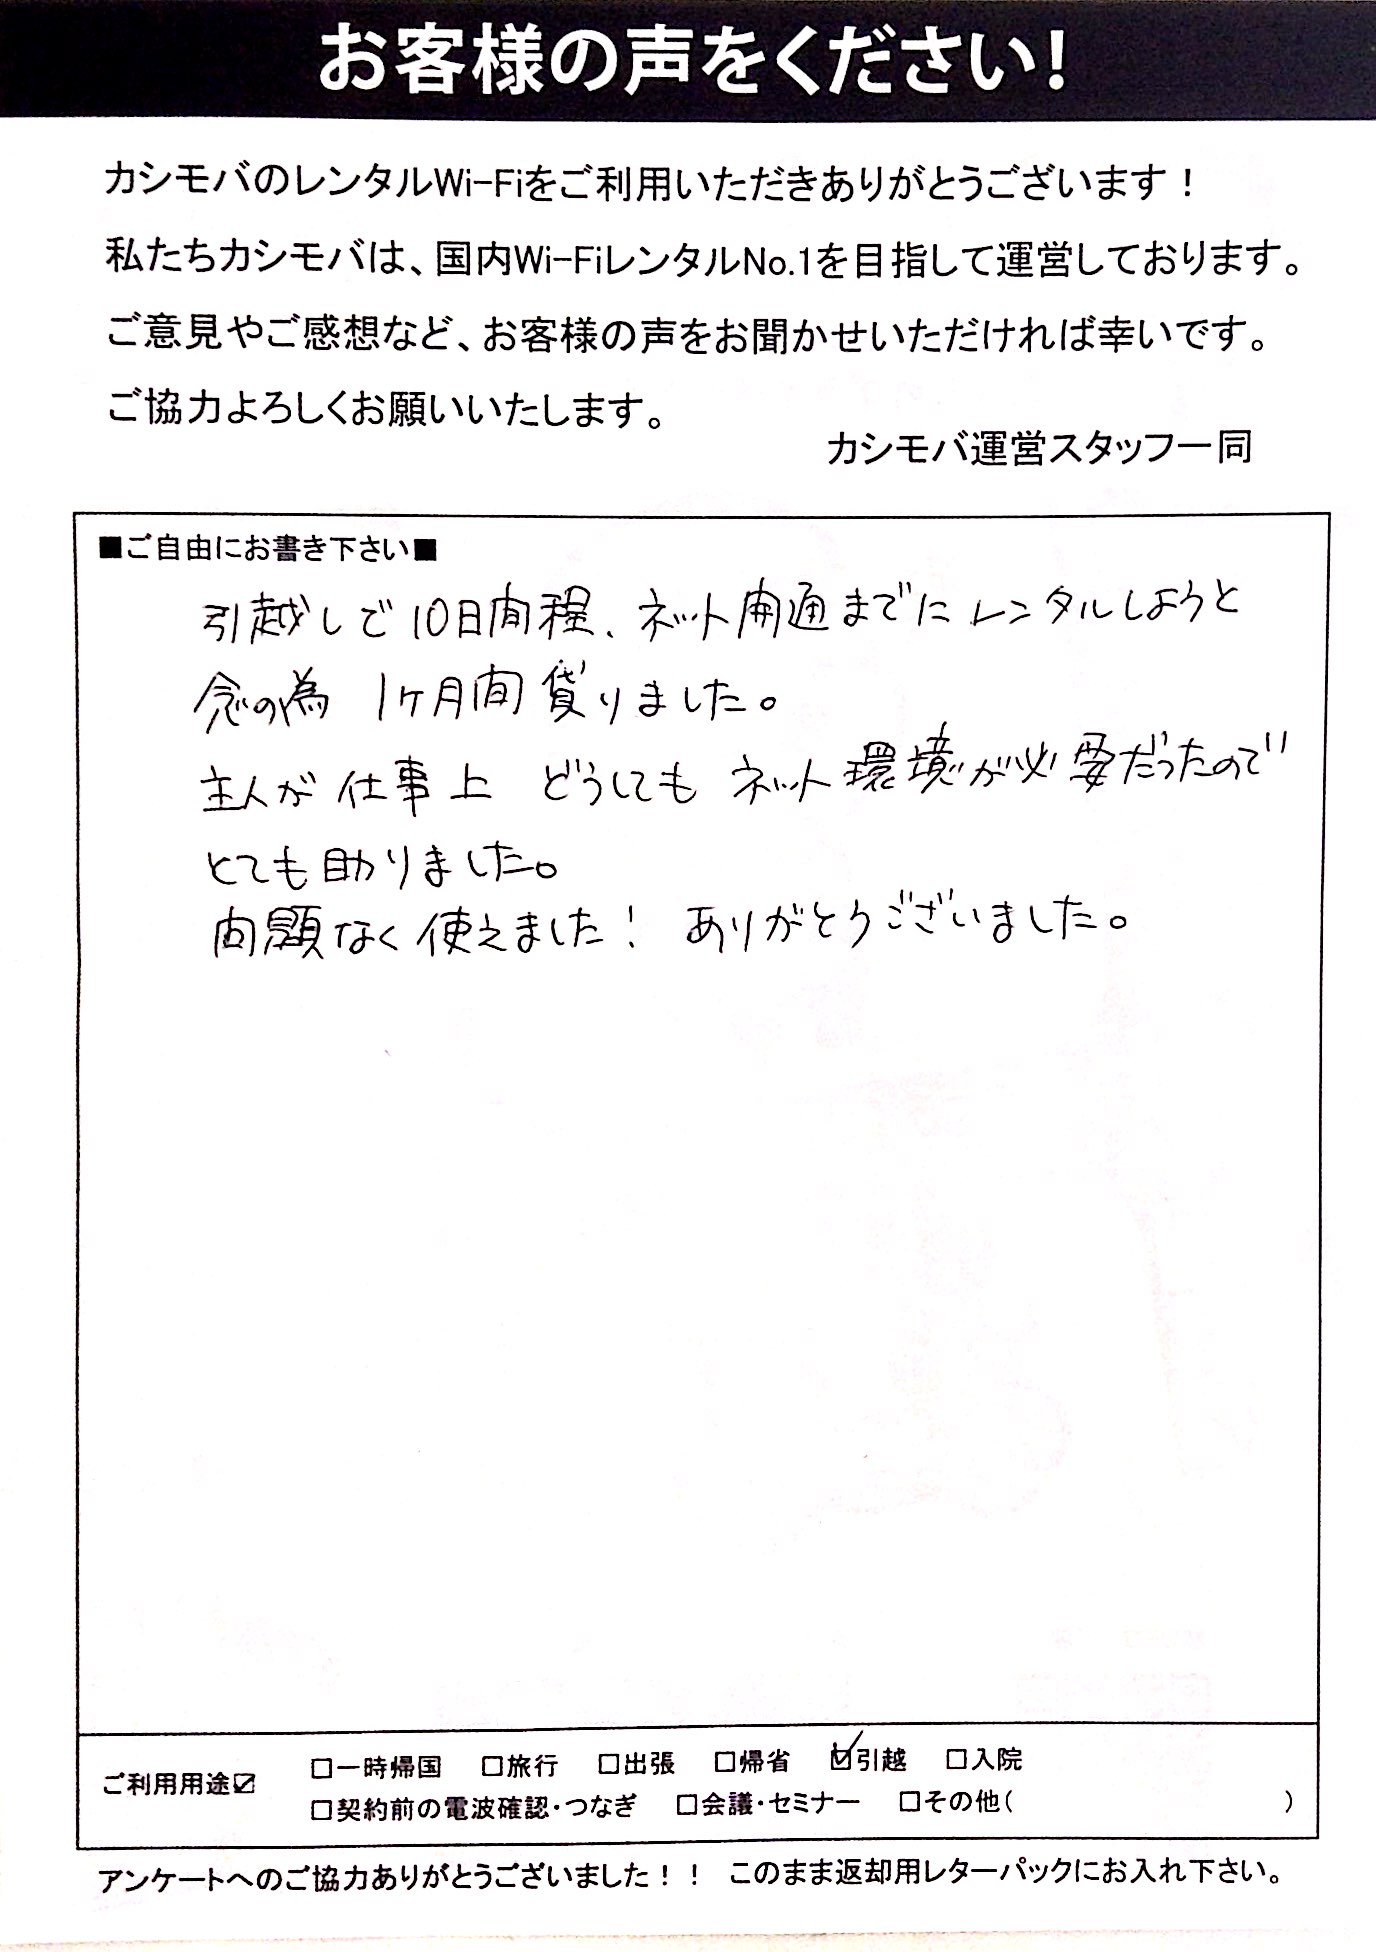 お客様の声をください!
カシモバのレンタルWi-Fiをご利用いただきありがとうございます！
私たちカシモバは、国内Wi-FiレンタルNo.1を目指して運営しております。
ご意見やご感想など、お客様の声をお聞かせいただければ幸いです。
ご協力よろしくお願いいたします。
カシモバ運営スタッフ一同
■ご自由にお書き下さい■
引越しで10日間程、ネット開通までに レンタルしようと
念の為 1ヶ月間 貸りました。
主人が 仕事上 どうしても ネット環境が必要だったので
とても助りました。
問題なく使えました! ありがとうございました。
ご利用用途☑ □一時帰国 □旅行 □出張 □帰省 ☑引越 □入院
□契約前の電波確認・つなぎ □会議・セミナー □その他( )
アンケートへのご協力ありがとうございました！！ このまま返却用レターパックにお入れ下さい。